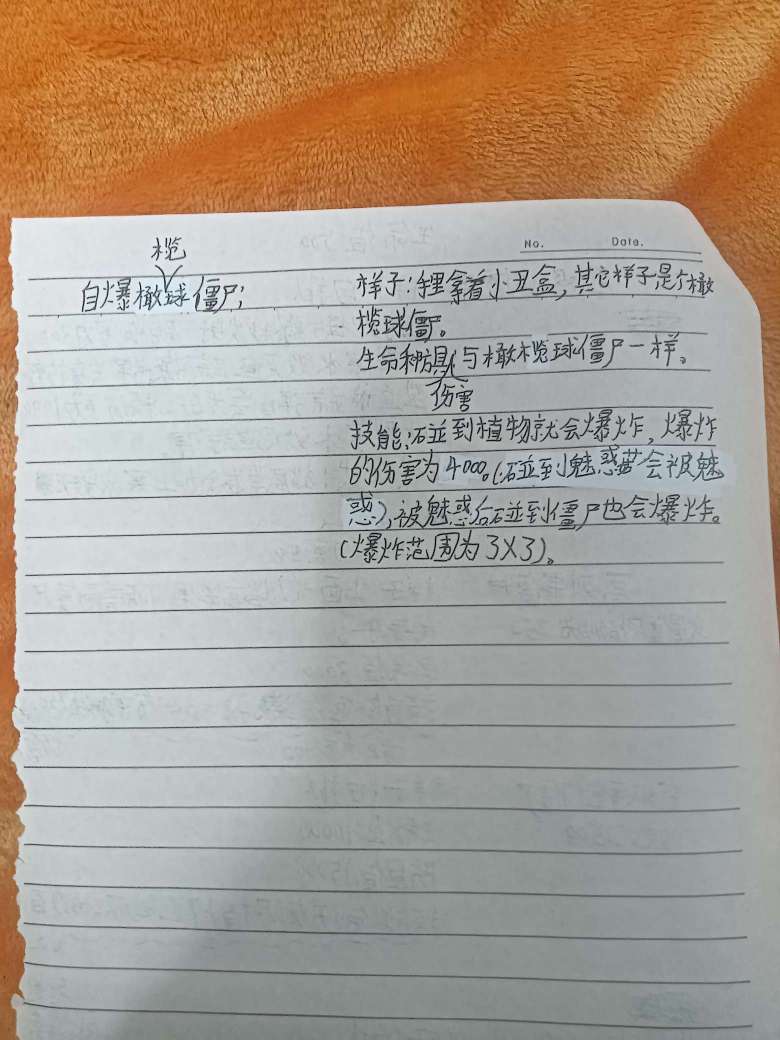 No. Date.
自爆橄榄球僵尸: 样子:手里拿着小丑盒,其它样子是个橄
榄球僵尸。
生命和伤害与橄榄球僵尸一样。
技能:碰到植物就会爆炸,爆炸
的伤害为4000。(碰到魅惑菇会被魅
惑),被魅惑后碰到僵尸也会爆炸。
(爆炸范围为3X3)。